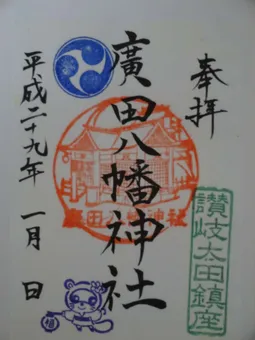 奉拝
廣田八幡神社
平成二十九年 一月 日
讃岐太田鎮座
廣田八幡神社
福